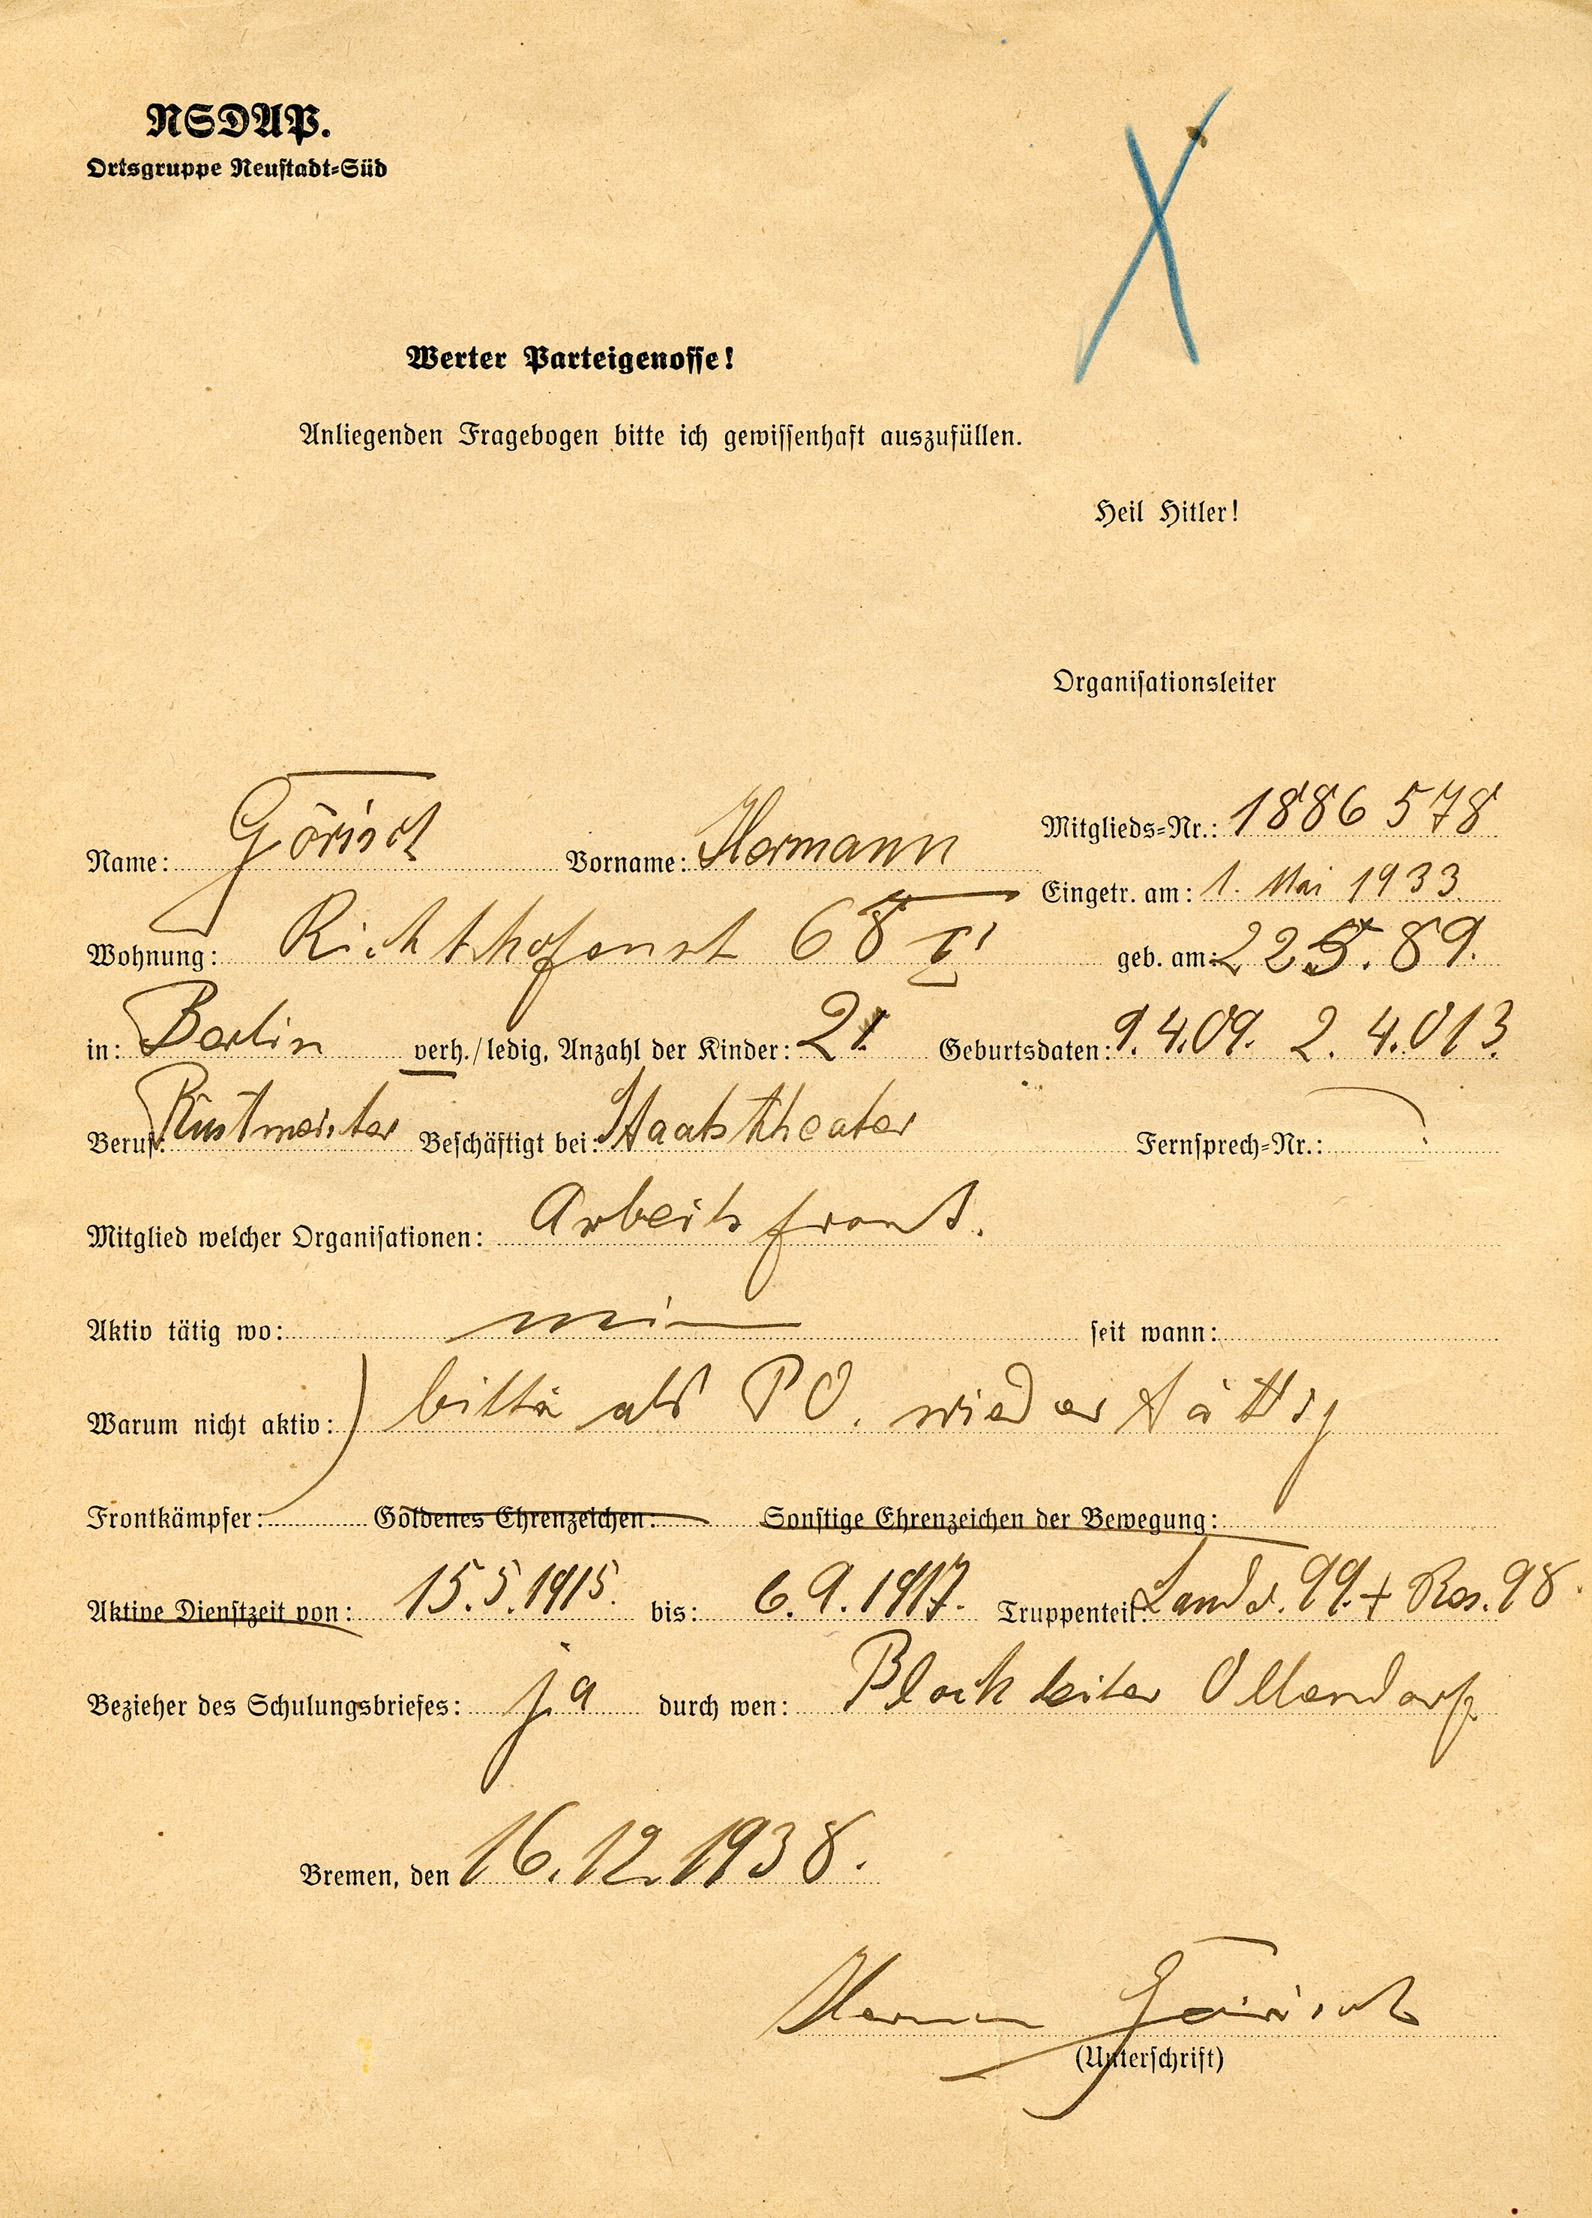 NSDAP.
Ortsgruppe Neustadt-Süd
Werter Parteigenosse!
Anliegenden Fragebogen bitte ich gewissenhaft auszufüllen.
Heil Hitler!
Organisationsleiter
Mitglieds-Nr.: 1886 578
Name: Görisch Vorname: Hermann
Eingetr. am: 1. Mai 1933
Wohnung: Richthofenst 68 I geb. am: 22.5.89.
in: Berlin verh./ledig, Anzahl der Kinder: 2 Geburtsdaten: 9.4.09. 2.4.013.
Beruf: Rüstmeister Beschäftigt bei: Staatstheater Fernsprech-Nr.:
Mitglied welcher Organisationen: Arbeitsfront.
Aktiv tätig wo: seit wann:
Warum nicht aktiv: als PO. wieder tättig
Frontkämpfer: Goldenes Ehrenzeichen: Sonstige Ehrenzeichen der Bewegung:
Aktive Dienstzeit von: 15.5.1915. bis: 6.9.1917. Truppenteil: Landst. 99. + Res. 98.
Bezieher des Schulungsbriefes: ja durch wen: Blockleiter Ollendorf
Bremen, den 16.12.1938.
Hermann Görisch
(Unterschrift)